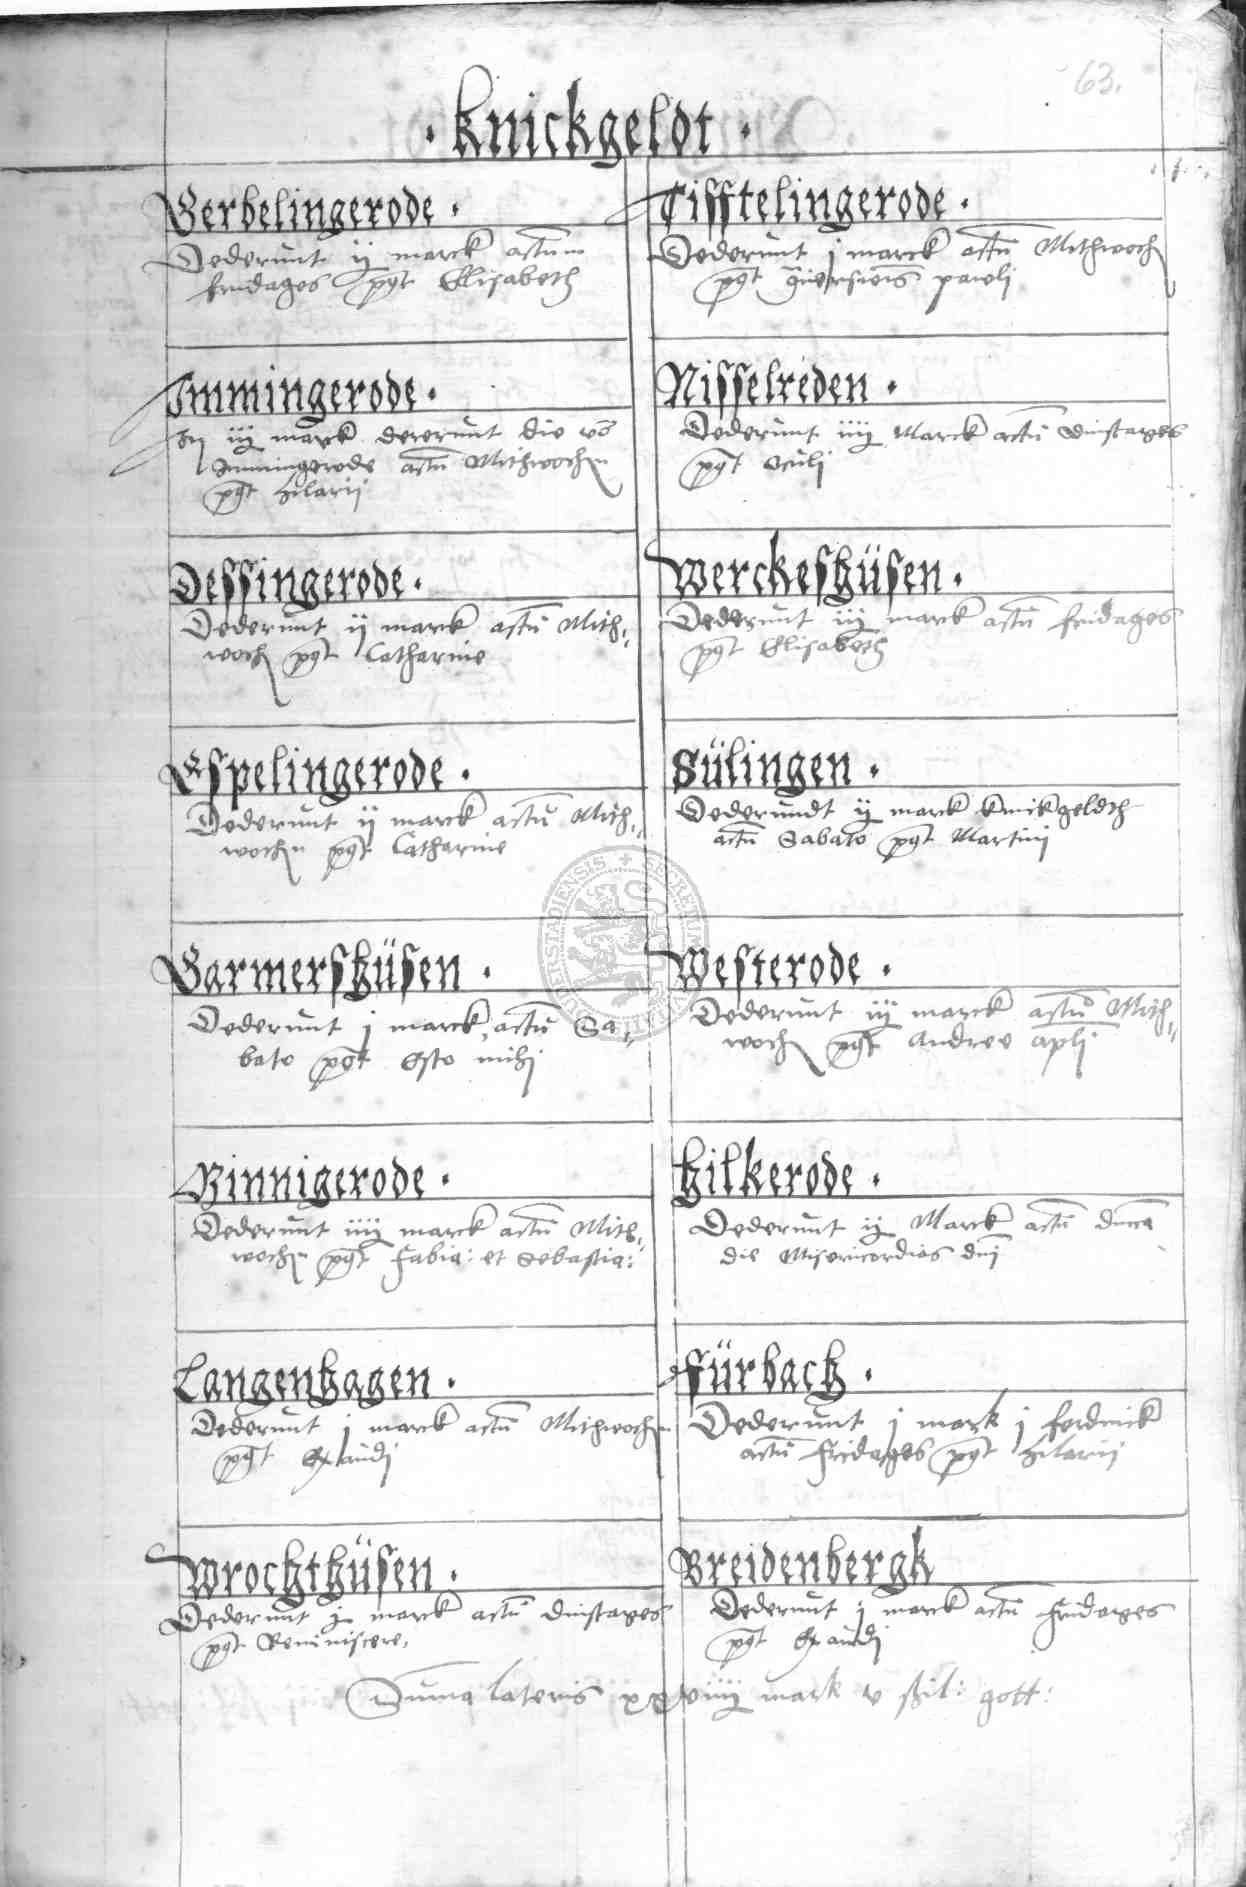 63.
· Knickgeldt ·
Gerbelingerode ·
Dederunt ij marck actum
fridages pꝫt Elisabeth
Immingerode ·
iij marck dererunt die vō
Immingerode actū Mithwochen
pꝫt hilarij
Dessingerode ·
Dederunt ij marck actū Mith„
woch pꝫt Catharine
Espelingerode ·
Dederunt ij marck actū Mith„
wochen pꝫt Catharine
Garmershüsen ·
Dederunt j marck actū Sa„
bato pꝫt Esto mihj
Binnigerode ·
Dederunt iiij marck actū Mith„
wochen pꝫt Fabia: et Sebastia:
Langenhagen ·
Dederunt j marck actū Mithwochen
pꝫt Exaudj
Wrochthüsen ·
Dederunt j marck actū dinstages
pꝫt Reminiscere,
Tifftelingerode ·
Dederunt j marck actū Mithwoch
pꝫt pauli
Nisselreden ·
Dederunt iiij Marck actū dinstages
pꝫt oculj
Werckeshüsen ·
Dederunt iij marck actū fridages
pꝫt Elisabeth
Sülingen ·
Dederundt ij marck knickgeldth
actū Sabato pꝫt Martinj
Westerode ·
Dederunt iij marck actū Mith„
woch pꝫt Andree apli
Hilkerode ·
Dederunt ij Marck actū dnica
die Misericordias dnj
Fürbach ·
Dederunt j mark j ferdinck
actū Fridages pꝫt hilarij
Breidenbergk
Dederunt j marck actū Fridages
pꝫt Exaudj
Suma lateris xxxviiij mark v ßil: gott:
SECRETUM CIVITATIS DUDERSTADIENSIS